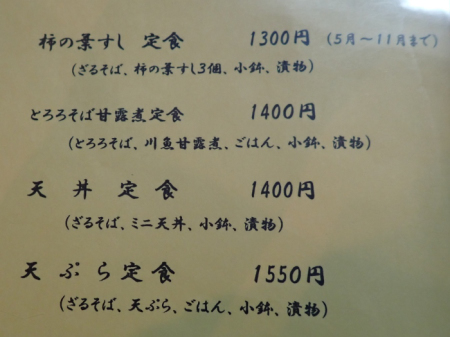 柿の葉すし 定食 1300円 (5月～11月まで)
(ざるそば、柿の葉すし3個、小鉢、漬物)
とろろそば甘露煮定食 1400円
(とろろそば、川魚甘露煮、ごはん、小鉢、漬物)
天丼定食 1400円
(ざるそば、ミニ天丼、小鉢、漬物)
天ぷら定食 1550円
(ざるそば、天ぷら、ごはん、小鉢、漬物)